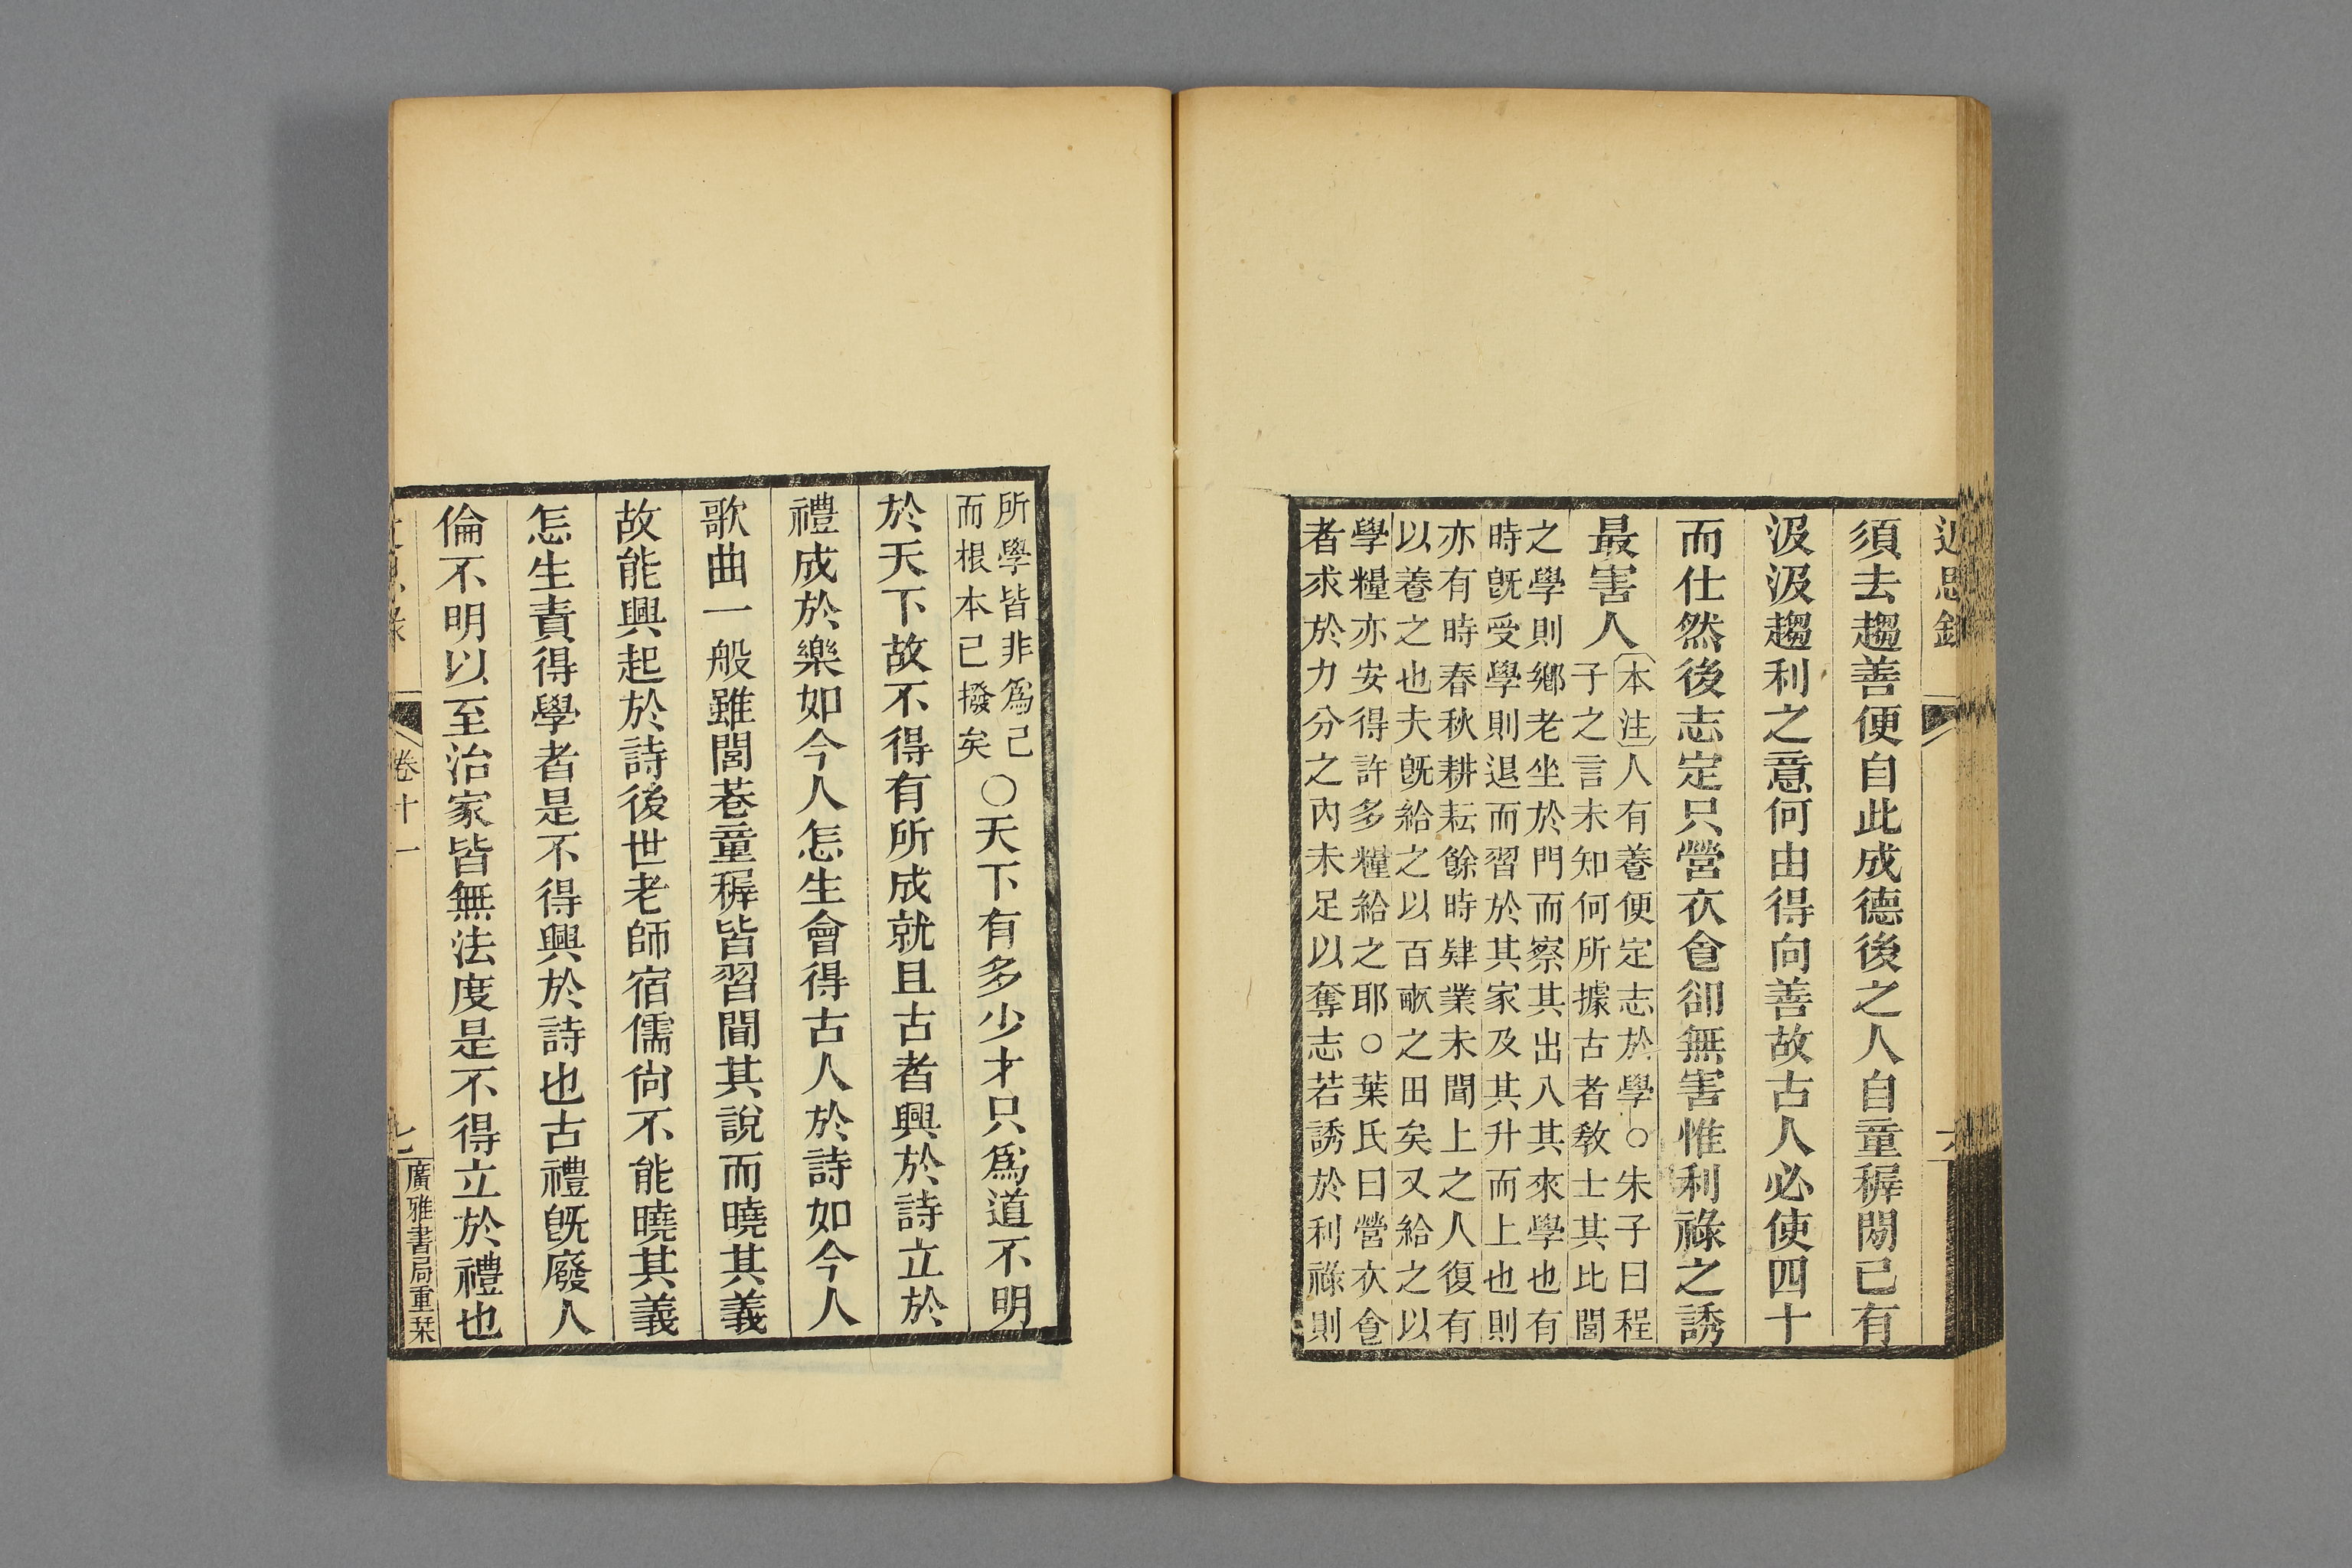 近思錄
六
須去趨善便自此成德後之人自童穉閒已有
汲汲趨利之意何由得向善故古人必使四十
而仕然後志定只營衣食卻無害惟利祿之誘
最害人
本注人有養便定志於學○朱子曰程
子之言未知何所據古者敎士其比閭
之學則鄉老坐於門而察其出入其來學也有
時旣受學則退而習於其家及其升而上也則
亦有時春秋耕耘餘時肄業未聞上之人復有
以養之也夫旣給之以百畝之田矣又給之以
學糧亦安得許多糧給之耶○葉氏曰營衣食
者求於力分之內未足以奪志若誘於利祿則
所學皆非爲己
而根本已撥矣
○天下有多少才只爲道不明
於天下故不得有所成就且古者興於詩立於
禮成於樂如今人怎生會得古人於詩如今人
歌曲一般雖閭巷童穉皆習聞其說而曉其義
故能興起於詩後世老師宿儒尙不能曉其義
怎生責得學者是不得興於詩也古禮旣廢人
倫不明以至治家皆無法度是不得立於禮也
近思錄
卷十一
七
廣雅書局重栞